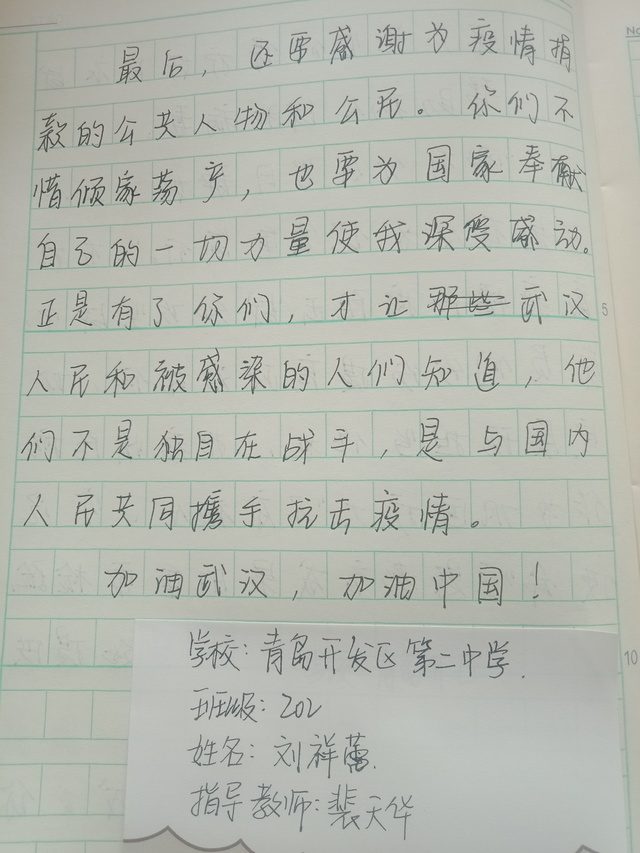 最后，还要感谢为疫情捐
款的公共人物和公民。你们不
惜倾家荡产，也要为国家奉献
自己的一切力量使我深受感动。
正是有了你们，才让那些武汉
人民和被感染的人们知道，他
们不是独自在战斗，是与国内
人民共同携手抗击疫情。
加油武汉，加油中国！
学校：青岛开发区第二中学.
班级：202
姓名：刘祥蕾.
指导教师：裴天华
5
10